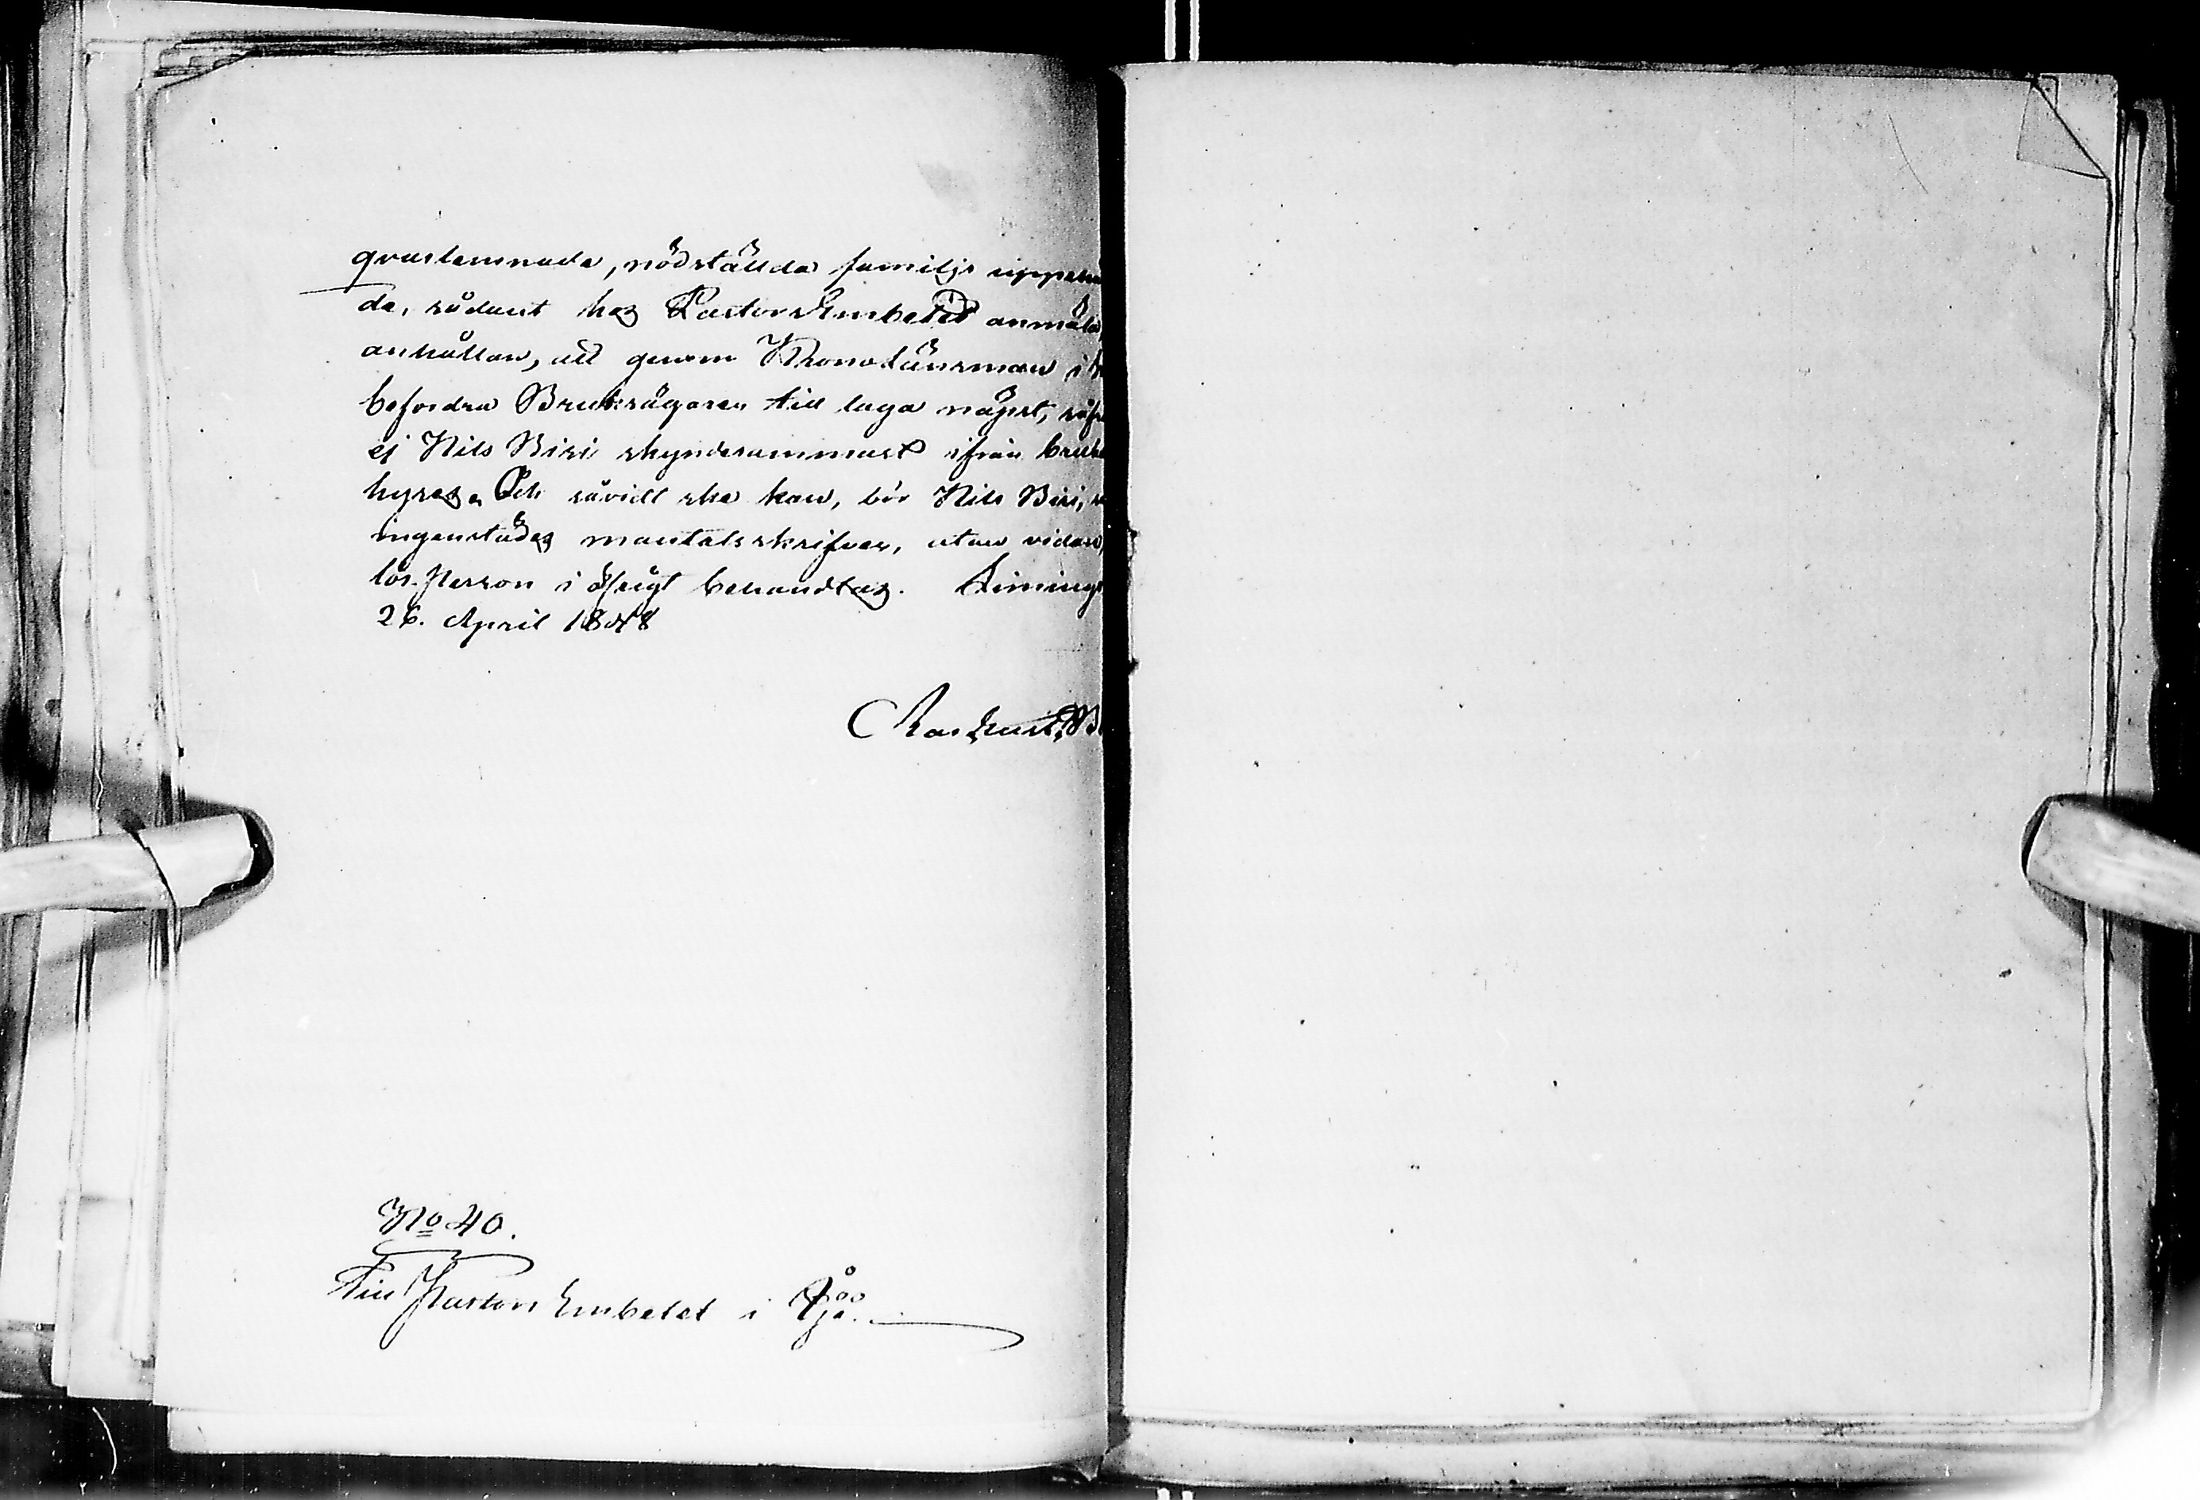 qvarlemnade, nödställda familjs uppehä
de, sådant hos PastorsEmbetet anmäla,
anhållan, att genom Kronolänsman i
befordra Bruksägaren till laga näpst, såfr
ej Nils Bisi skyndsammast ifrån bruke
hyses. Och såvidt ske kan, bör Nils Bisi, s
ingenstädes mantalsskrifvas, utan vidare,
lös-Person i öfrigt behandlas. Kiming
26. April 1848
No 40.
Till Pastors Embetet i Ijo.